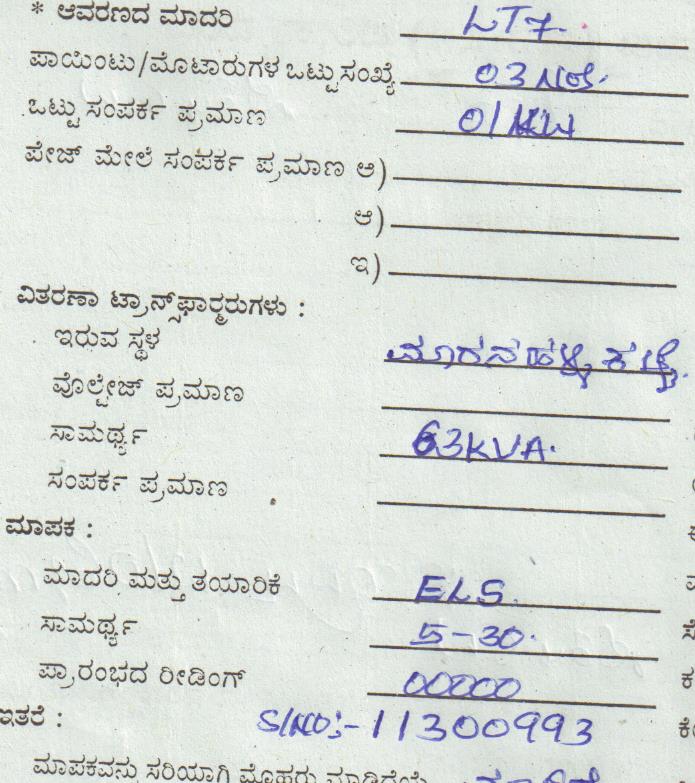 * ಆವರಣದ ಮಾದರಿ LT7.
ಪಾಯಿಂಟು/ಮೊಟಾರುಗಳ ಒಟ್ಟು ಸಂಖ್ಯೆ 03 NOS.
ಒಟ್ಟು ಸಂಪರ್ಕ ಪ್ರಮಾಣ 01 KW
ಪೇಜ್ ಮೇಲೆ ಸಂಪರ್ಕ ಪ್ರಮಾಣ ಅ)
ಆ)
ಇ)
ವಿತರಣಾ ಟ್ರಾನ್ಸ್‌ಫಾರ್‍ಮರುಗಳು :
ಇರುವ ಸ್ಥಳ ಮಾರನಹಳ್ಳಿ
ವೊಲ್ಟೇಜ್ ಪ್ರಮಾಣ
ಸಾಮರ್ಥ್ಯ 63KVA.
ಸಂಪರ್ಕ ಪ್ರಮಾಣ
ಮಾಪಕ :
ಮಾದರಿ ಮತ್ತು ತಯಾರಿಕೆ ELS.
ಸಾಮರ್ಥ್ಯ 5-30.
ಪ್ರಾರಂಭದ ರೀಡಿಂಗ್ 00000
ಇತರೆ : S/NO:- 11300993
ಮಾಪಕವನ್ನು ಸರಿಯಾಗಿ ಮೊಹರು ಮಾಡಿದೆಯೆ